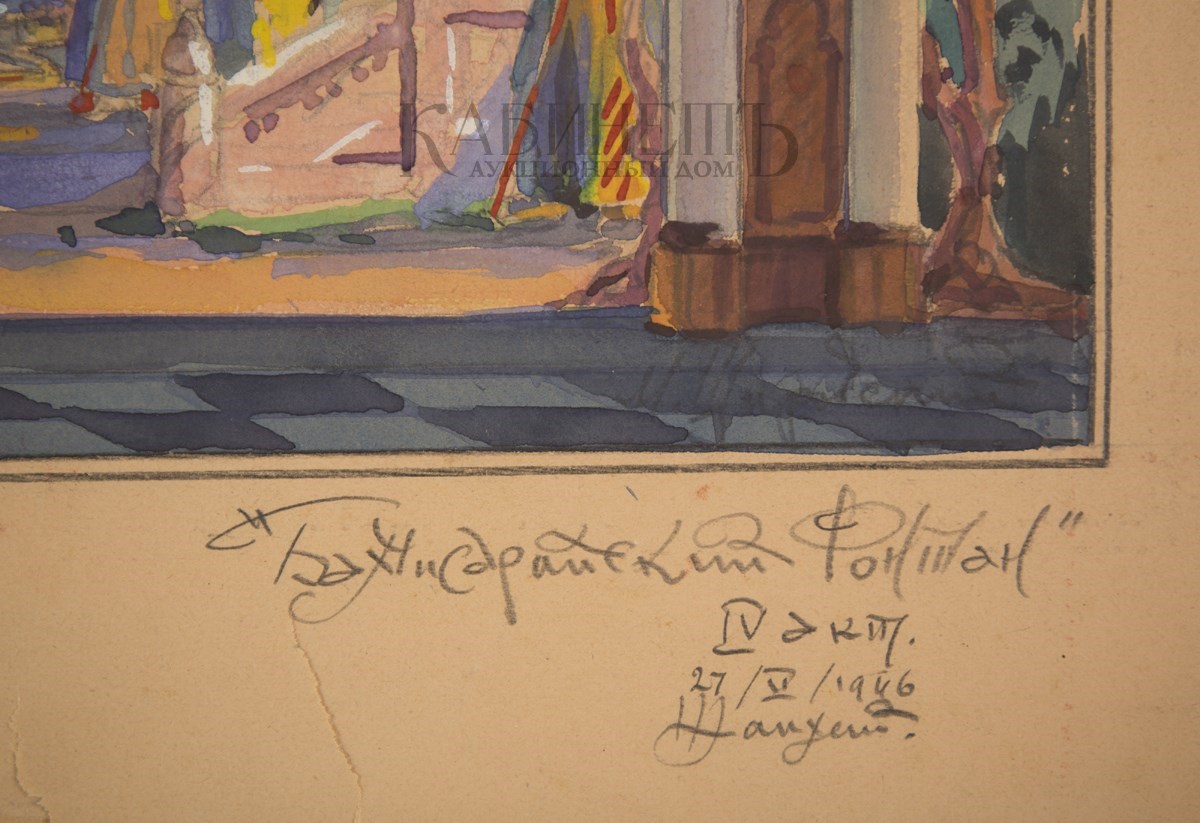 КАБИНЕТЪ
АУКЦИОННЫЙ ДОМ
"Бахчисарайский Фонтан"
IV акт.
27/VI/1946